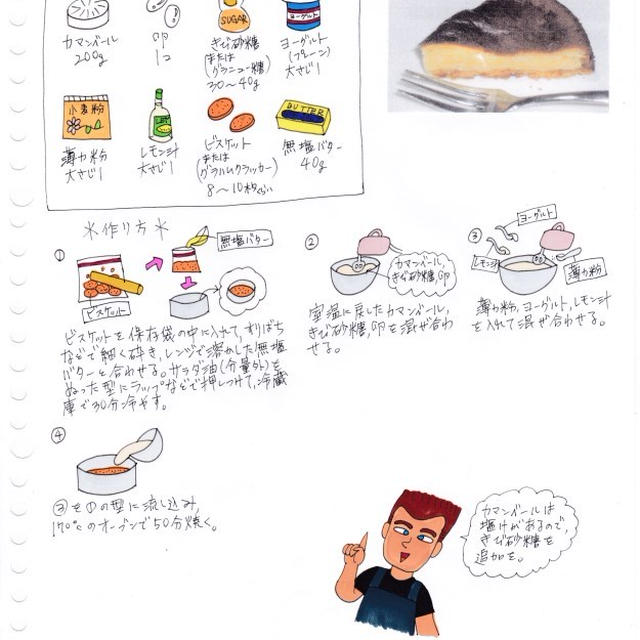 カマンベール
200g
卵
1コ
SUGAR
きび砂糖
または
(グラニュー糖)
30〜40g
ヨーグルト
ヨーグルト
(プレーン)
大さじ1
小麦粉
薄力粉
大さじ1
レモン汁
大さじ1
ビスケット
または
(グラハムクラッカー)
8〜10枚くらい
BUTTER
無塩バター
40g
*作り方*
①
無塩バター
ビスケット
ビスケットを保存袋の中に入れて、すりばち
などで細く砕き、レンジで溶かした無塩
バターと合わせる。サラダ油(分量外)を
ぬった型にラップなどで押しつけて、冷蔵
庫で30分冷やす。
②
カマンベール,
きび砂糖,卵
室温に戻したカマンベール,
きび砂糖,卵を混ぜ合わ
せる。
③
ヨーグルト
レモン汁
薄力粉
薄力粉,ヨーグルト,レモン汁
を入れて混ぜ合わせる。
④
③を①の型に流し込み,
170℃のオーブンで50分焼く。
カマンベールは
塩けがあるので,
きび砂糖を
追加を。